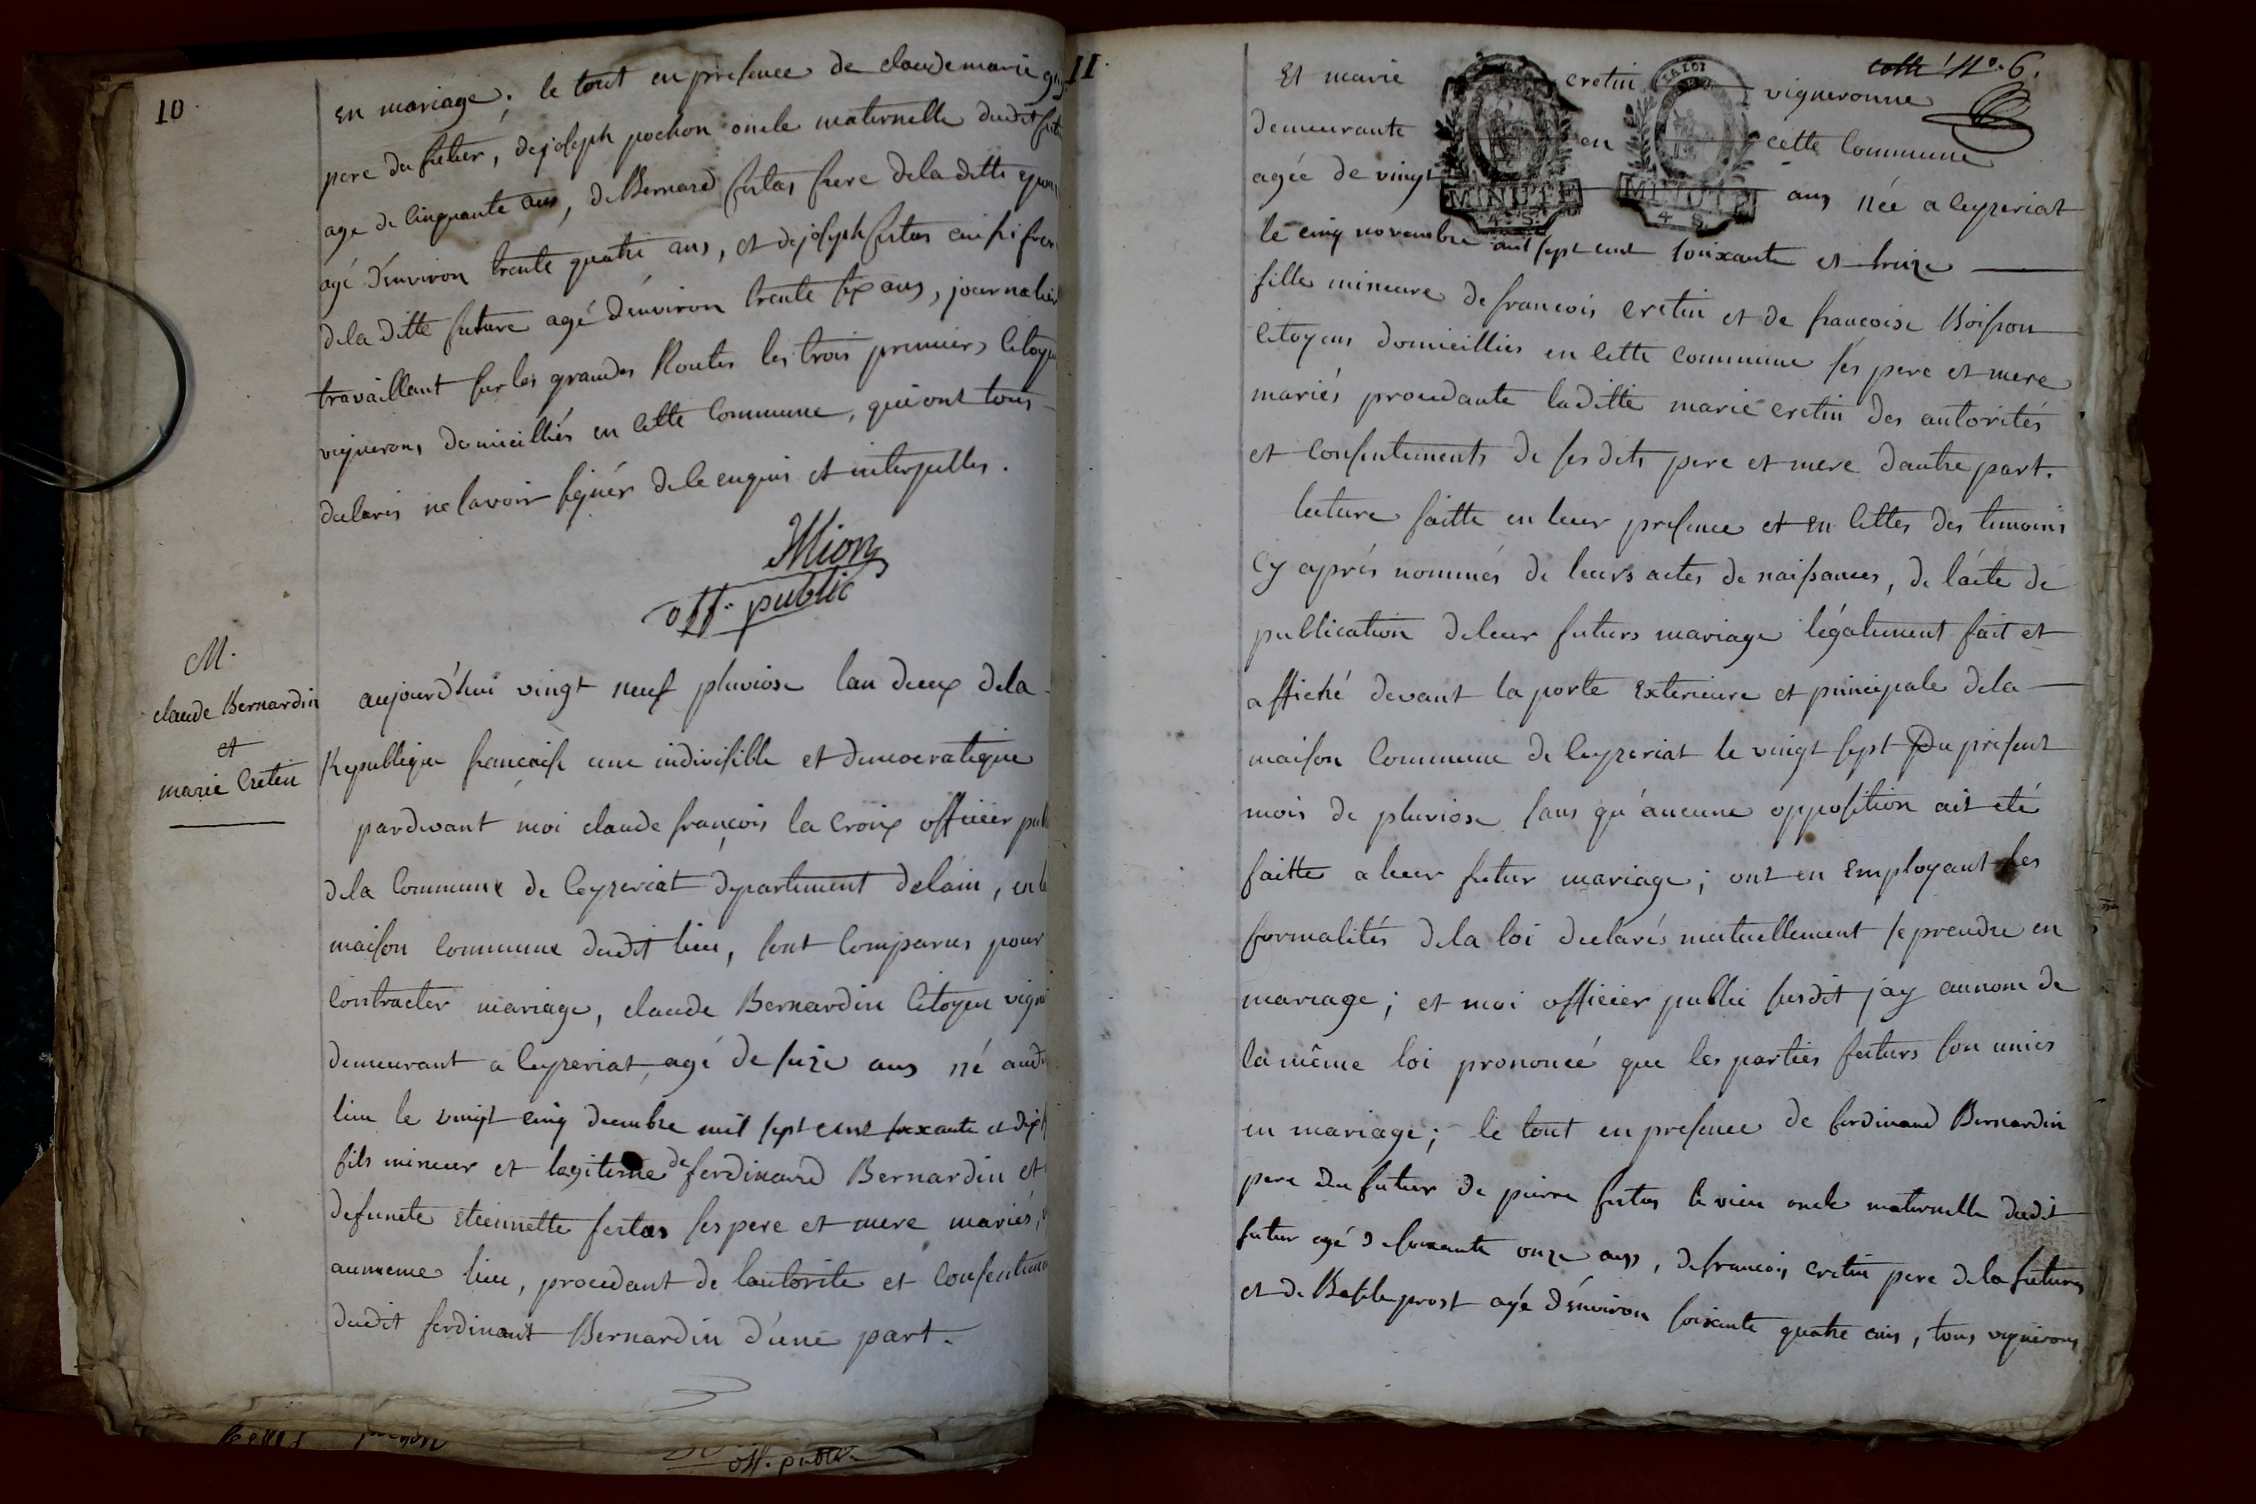 10
en mariage; le tout en presence de claude marie
pere du futur, de joseph pochon oncle maternelle dudit
age de cinquante ans, de Bernard festas frere de la ditte
agé d'environ trente quatre ans, et de joseph festas aussi frere
de la ditte future agé d'environ trente six ans, journalier
travaillant sur les grandes Routes les trois premiers
vignerons domicilliés en cette commune, qui ont tous
declarés ne savoir signér de ce enquis et interpellés.
Mion
off. public
M.
claude Bernardin
et
marie Cretin
aujourd'hui vingt neuf pluviose lan deux de la
Republique francaise une indivisible et democratique
pardevant moi claude françois la croix officier
de la Commune de Ceyzeriat departement de lain, en
maison commune dudit lieu, sont comparus pour
contracter mariage, claude Bernardin Citoyen
demeurant a Ceyzeriat, agé de seize ans né
lieu le vingt cinq decembre mil sept cent soixante et dix
fils mineur et lagiteme de ferdinand Bernardin et
defuncte etiennette festas ses pere et mere mariés,
au meme lieu, procedant de lautorite et
dudit ferdinant Bernardin d'une part.
off. public
11
cotté N°. 6.
Et marie cretin vigneronne
demeurante en cette Commune
agée de vingt ans née a Ceyzeriat
MINUTE
4. S.
MINUTE
4. S.
le cinq novembre mil sept cent soixante et treize
fille mineure de francois cretin et de francoise Boisson
citoyens domicilliés en cette commune ses pere et mere
mariés procedante laditte marie cretin des autorités
et consentements de ses dits pere et mere d'autre part.
lecture faitte en leur presence et en celles des temoins
Cy aprés nommés de leurs actes de naissances, de l'acte de
publication de leur futurs mariage légalement fait et
affiché devant la porte exterieure et principale de la
maison Commune de Ceyzeriat le vingt sept Du présent
mois de pluviose sans qu'aucune opposition ait eté
faitte a leur futur mariage; ont en employant les
formalités de la loi declarés mutuellement se prendre en
mariage; et moi officier public susdit jay au nom de
la même loi prononcé que les parties futurs son unies
en mariage; le tout en presence de ferdinand Bernardin
pere du futur de pierre festas le vieu oncle maternelle dudit
futur agé de soixante onze ans, de francois cretin pere de la future
et de Basile prost agé d'environ soixante quatre ans, tous vignerons